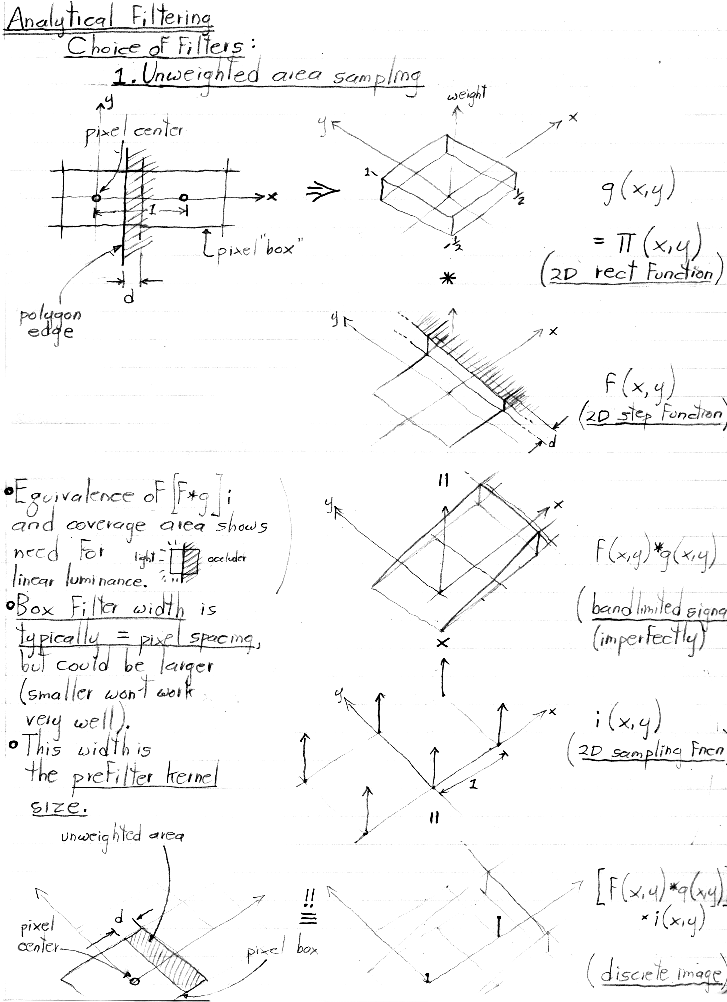 Analytical Filtering
Choice of Filters:
1. Unweighted area sampling
y
pixel center
x
1
pixel "box"
d
polygon
edge
weight
y
x
1
1/2
1/2
g(x,y)
= Π(x,y)
(2D rect Function)
*
y
x
d
F(x,y)
(2D step Function)
• Equivalence of [F*g]i
and coverage area shows
need for
linear luminance.
light
occluder
• Box Filter width is
typically = pixel spacing,
but could be larger
(smaller won't work
very well).
• This width is
the prefilter kernel
size.
=
y
x
F(x,y)*g(x,y)
(bandlimited signa
(imperfectly)
×
y
x
1
i(x,y)
(2D sampling Fncn
=
unweighted area
d
pixel
center
pixel box
!!
≡
1
[F(x,y)*g(x,y)
×i(x,y)
(discrete image)